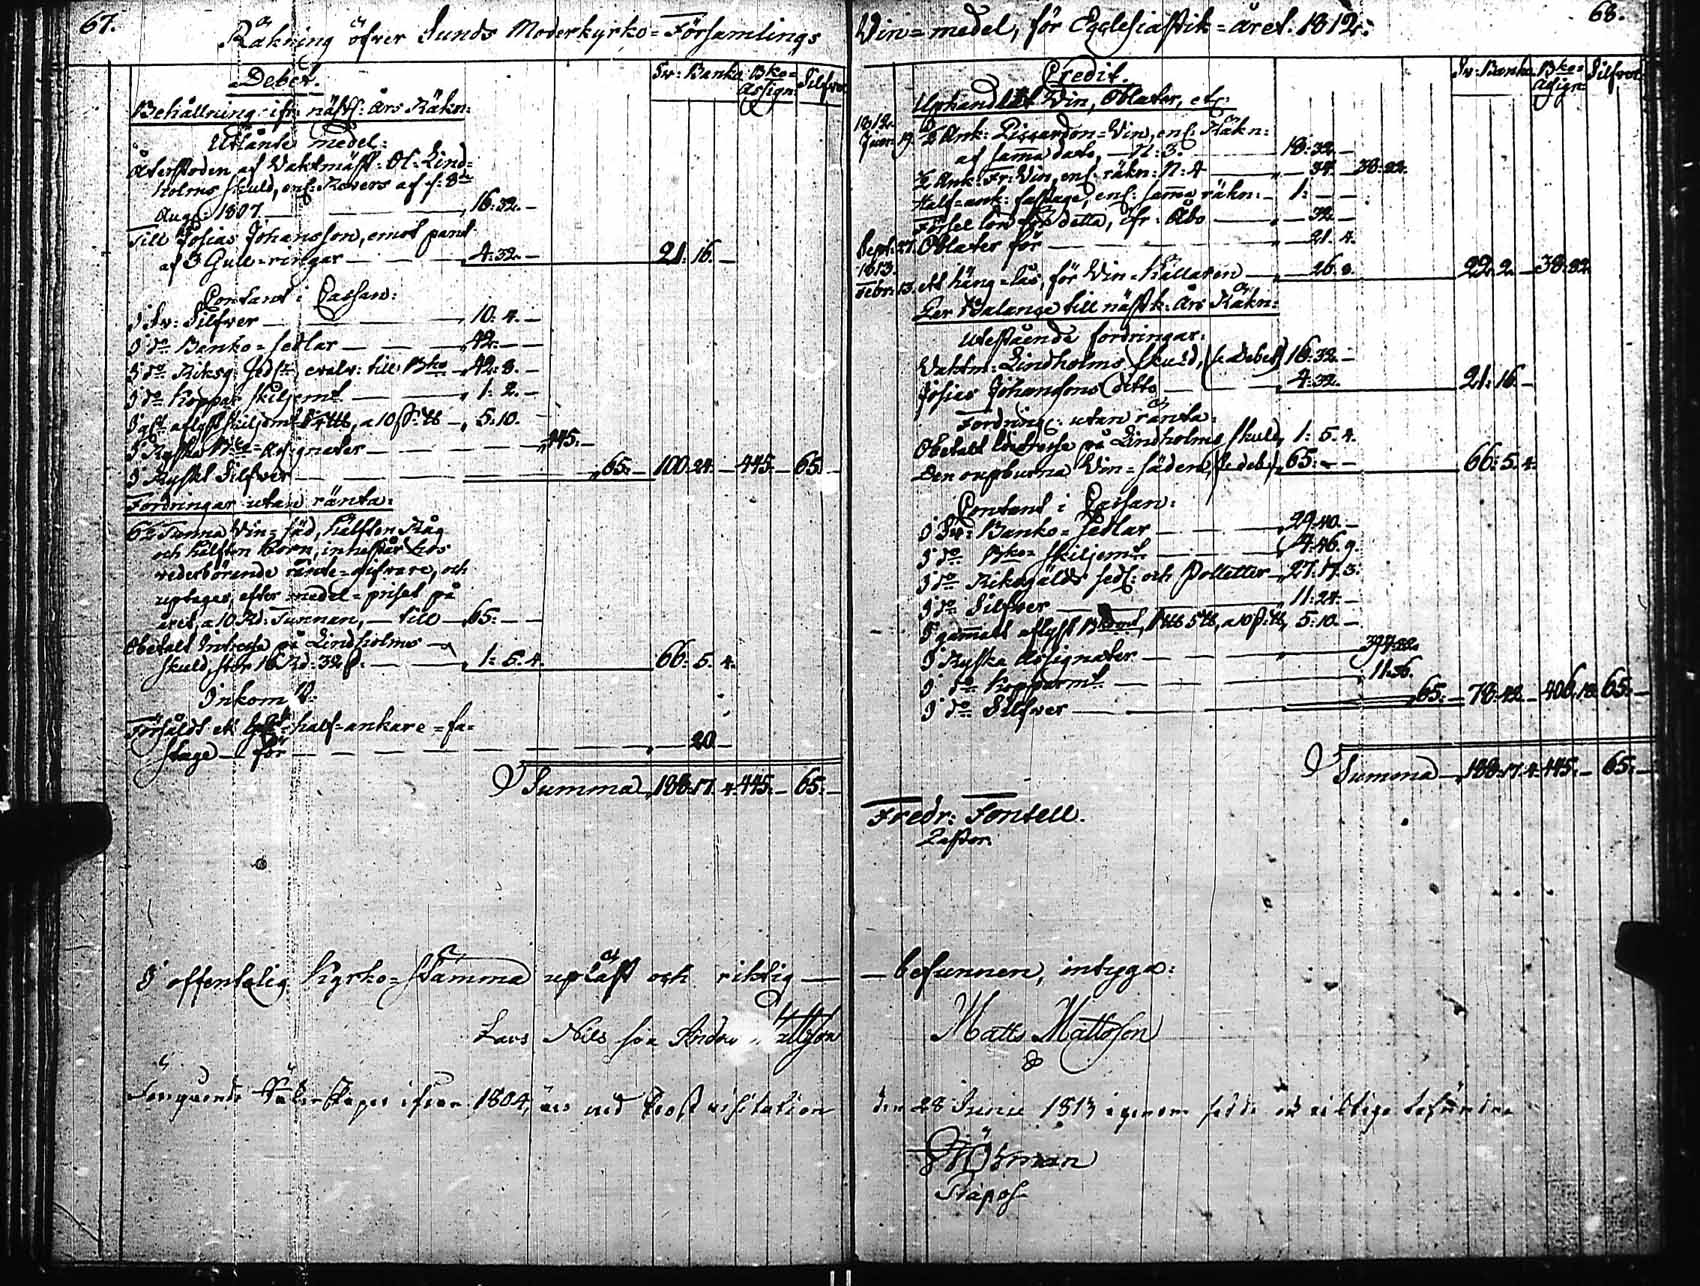 67.
Räkning öfver Sunds Moderkyrko=Församlings
Debet.
Sv: Banko
Bko= Assign:
Silfver
Behållning ifr: näst: års Räkn:
Utlånte medel:
Återstoden af Vaktmäst. Ol: Lind=
holms skuld, enl: Revers af d: 8de
Aug: 1807. — 16:32.—
Till Josias Johansson, emot pant
af 3 Guld=ringar — 4:32.— 21:16.—
Contant i Cassan:
I Sv: Silfver — 10.4.—
I do Banko=sedlar — 42.—
I do Riksg: sedlr evalv: till Bko — 42:8.—
I do Koppar skiljemt — 1:2.—
5.10.
I Ryska Bko=Assignater — 445.—
I Ryskt Silfver — 65.— 100.24.— 445.— 65.
Fordringar utan ränta:
6½ Tunna Vin=säd, hälften Råg
och hälften Korn, innestår hos
vederbörande ränte=gifvare, och
uptages efter medel=priset på
året, a 10 Rd: Tunnan, — till — 65.—
Obetalt Intresse på Lindholms
skuld, stor 16 Rd: 32 s: — 1:5.4. 66.5.4.
Inkom
Försåldt ett half=ankare=fa=
stage — för — 20.—
Summa 188.17.4. 445.— 65.—
I offentelig Kyrko=Stämma upläst och riktig —
Lars Nils son Anders Mattsson
ifrån 1804, äro vid Prost visitation
68.
Vin=medel, för Ecclesiastik=året. 1812.
Credit.
Sv: Banko
Bko= Assign:
Silfver
Uphandlat Vin, Oblater, etc:
1812.
Juni 19. ½ Ank: Win, enl: Räkn:
af samma dato, — N:3. — 18:32.—
½ Ank: Fr: Vin, enl: räkn: N:4 — 34. 38:32.
Half=ank: fastage, enl: samma räkn: — 1:—
Försel lön för detta, ifr: Åbo — 32.—
Sept: 27. Oblater för — 21.4.
1813.
Febr: 13. ett häng=lås, för Vin=Källaren — 26.8. 22:2.— 38:32.
Per Balance till nästk: års Räkn:
Utestående fordringar:
Vaktm: Lindholms skuld, (se Debet) 16:32.—
Josias Johanssons ditto — 4:32. 21:16.—
Fordring: utan ränta:
Obetalt Intresse på Lindholms skuld, 1:5.4.
Den oupburna Vin=säden, (se debet) 65:— 66:5.4.
Contant i Cassan:
I Sv: Banko=Sedlar — 29:40.—
I do Bko= skiljemt — 4:46.9.
I do Riksgälds sedl: och Polletter — 27:17.3.
I do Silfver — 11:24.—
5:10.—
I Ryska Assignater —
I do Kopparmt — 11:36.
I do Silfver — 65.— 78:42.— 406.18. 65.—
Summa 188:17.4. 445.— 65.—
Fredr: Fontell.
Pastor.
— befunnen, intyga:
Matts Mattsson
den 28 Junii 1813 igenom sedde och riktige befundne
Öhman
Præpos.